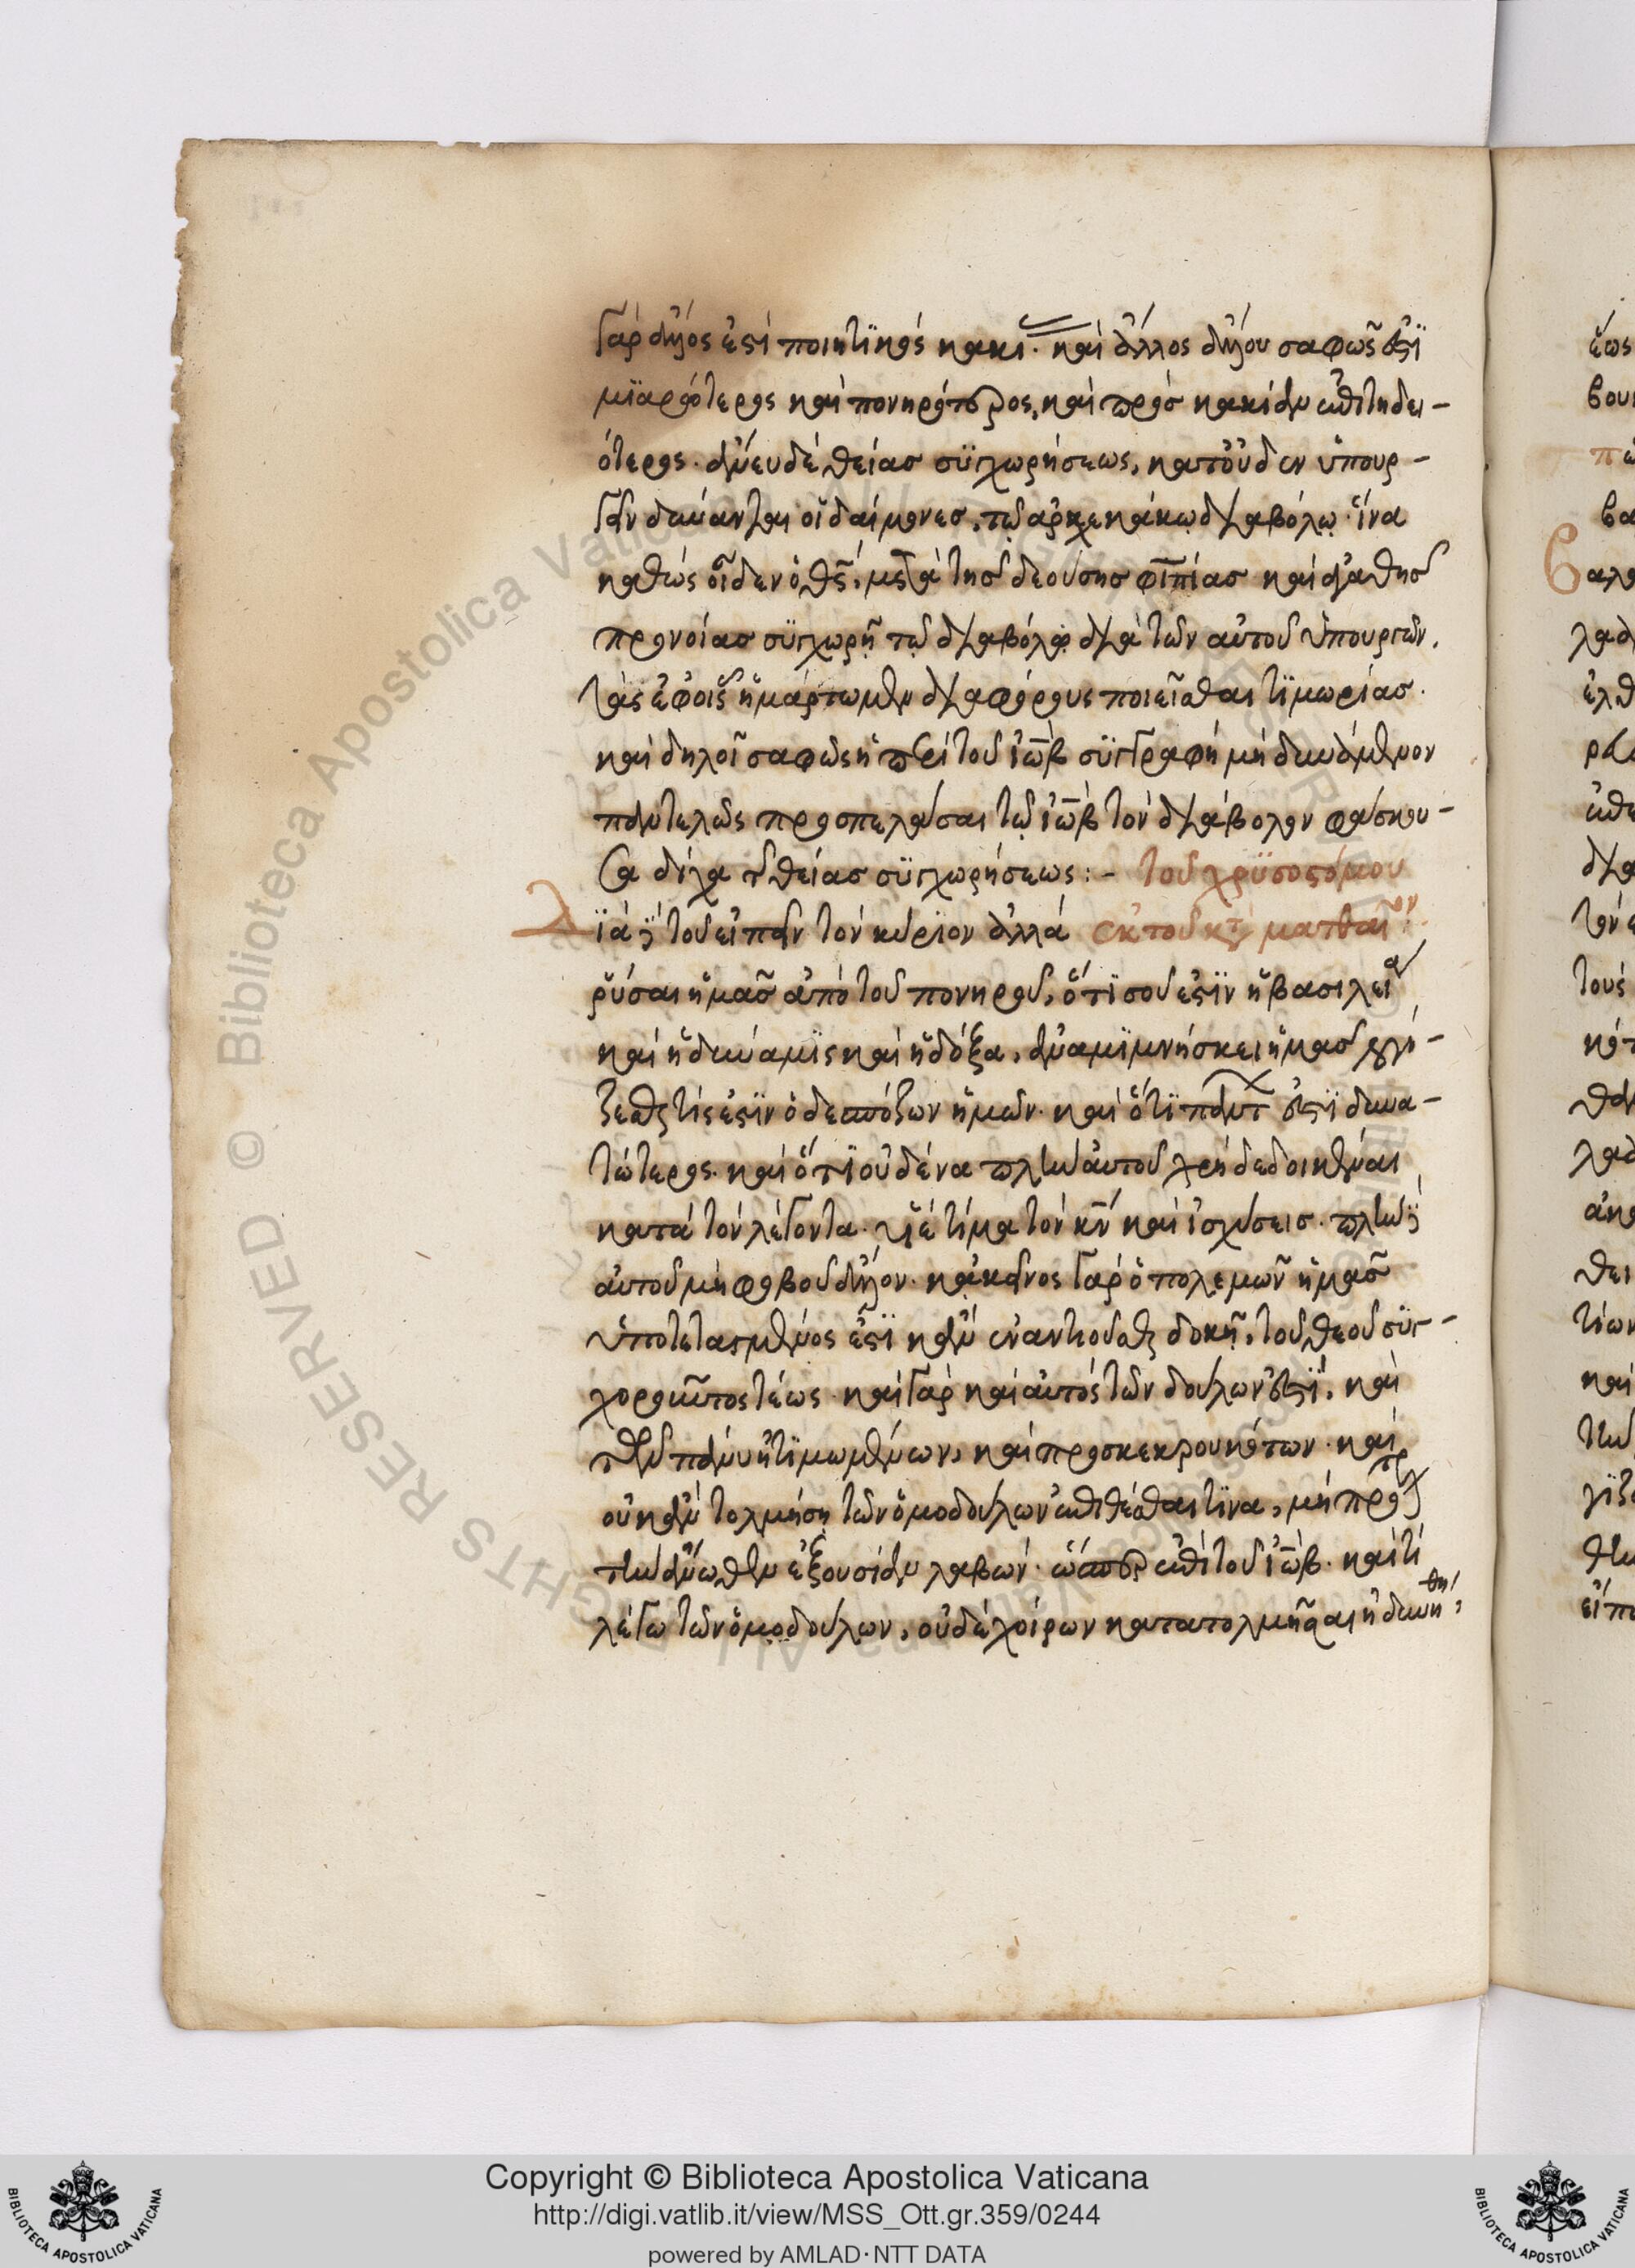 γὰρ ἄλλος ἐστὶ ποιητικὸς κακι. καὶ ἄλλος ἄλλου σαφῶς ἐστὶ
μϊαρότερος καὶ πονηρότερος, καὶ πρὸς κακίαν ἐπιτηδει-
ότερος. ἄνευ δὲ θείας συγχωρήσεως, κατ' οὐδὲν ὑπουρ-
γεῖν δύνανται οἱ δαίμονες, τῷ ἀρχεκάκῳ διαβόλῳ. ἵνα
καθὼς οἶδεν ὁ θς, μετὰ τῆς δεούσης φιπίας καὶ ἀγαθῆς
προνοίας συγχωρῇ τῷ διαβόλῳ διὰ τῶν αὐτοῦ ὑπουργῶν,
τὰς ἐφ' οἷς ἡμάρτωμεν διαφόρους ποιεῖσθαι τϊμωρίας.
καὶ δηλοῖ σαφῶς ἡ περὶ τοῦ ἰὼβ συγγραφὴ μὴ δυνάμενον
παντελῶς προσπελάσαι τῷ ἰὼβ τὸν διάβολον φάσκου-
σα δίχα τῆς θείας συγχωρήσεως :- τοῦ χρϋσοστόμου
Διὰ τοῦ εἰπεῖν τὸν κύριον ἀλλὰ ἐκ τοῦ κτ ματθαῖον
ῥῦσαι ἡμᾶς ἀπὸ τοῦ πονηροῦ, ὅτϊ σοῦ ἐστϊν ἡ βασιλεία
καὶ ἡ δύναμϊς καὶ ἡ δόξα, ἀναμϊμνήσκει ἡμᾶς λογί-
ζεσθαι τίς ἐστϊν ὁ δεσπόζων ἡμῶν. καὶ ὅτϊ πάντ ἐστϊ δυνα-
τώτερος. καὶ ὅτϊ οὐδένα πλὴν αὐτοῦ χρὴ δεδοικέναι
κατὰ τὸν λέγοντα. υἱὲ τίμα τὸν κν καὶ ἰσχύσεις. πλὴν δὲ
αὐτοῦ μὴ φοβοῦ ἄλλον. κἀκεῖνος γὰρ ὁ πολεμῶν ἡμᾶς
ὑποτεταγμένος ἐστὶ κἂν ἐναντιοῦσθαι δοκῇ, τοῦ θεοῦ συγ-
χοροῦντος τέως. καὶ γὰρ καὶ αὐτὸς τῶν δούλων ἐστϊ, καὶ
τῶν πάνυ ἠτϊμωμένων, καὶ προσκεκρουκότων. καὶ
οὐκ ἂν τολμήση τῶν ὁμοδούλων ἐπιθέσθαι τϊνα, μὴ πρό
τὴν ἄνωθεν ἐξουσίαν λαβών. ὥσπερ ἐπὶ τοῦ ἰὼβ. καὶ τί
λέγω τῶν ὁμοδούλων, οὐδὲ χοίρων κατατολμῆσαι ἠδυνήθη,
Copyright © Biblioteca Apostolica Vaticana
http://digi.vatlib.it/view/MSS_Ott.gr.359/0244
powered by AMLAD·NTT DATA